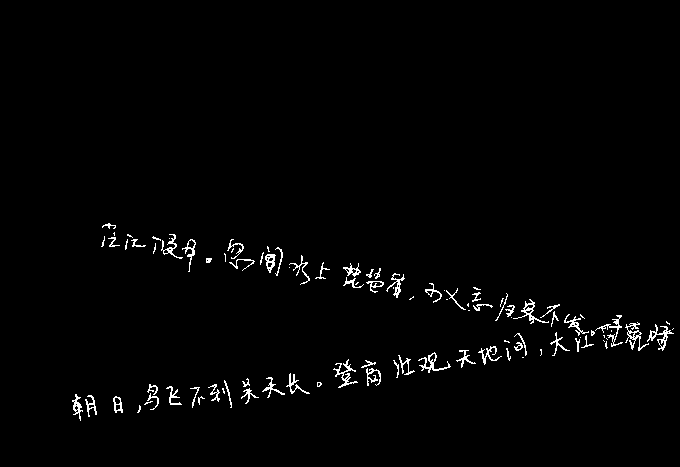 茫江浸月。忽闻水上琵琶声,主人忘归客不发
朝日,鸟飞不到吴天长。登高壮观天地间,大江茫